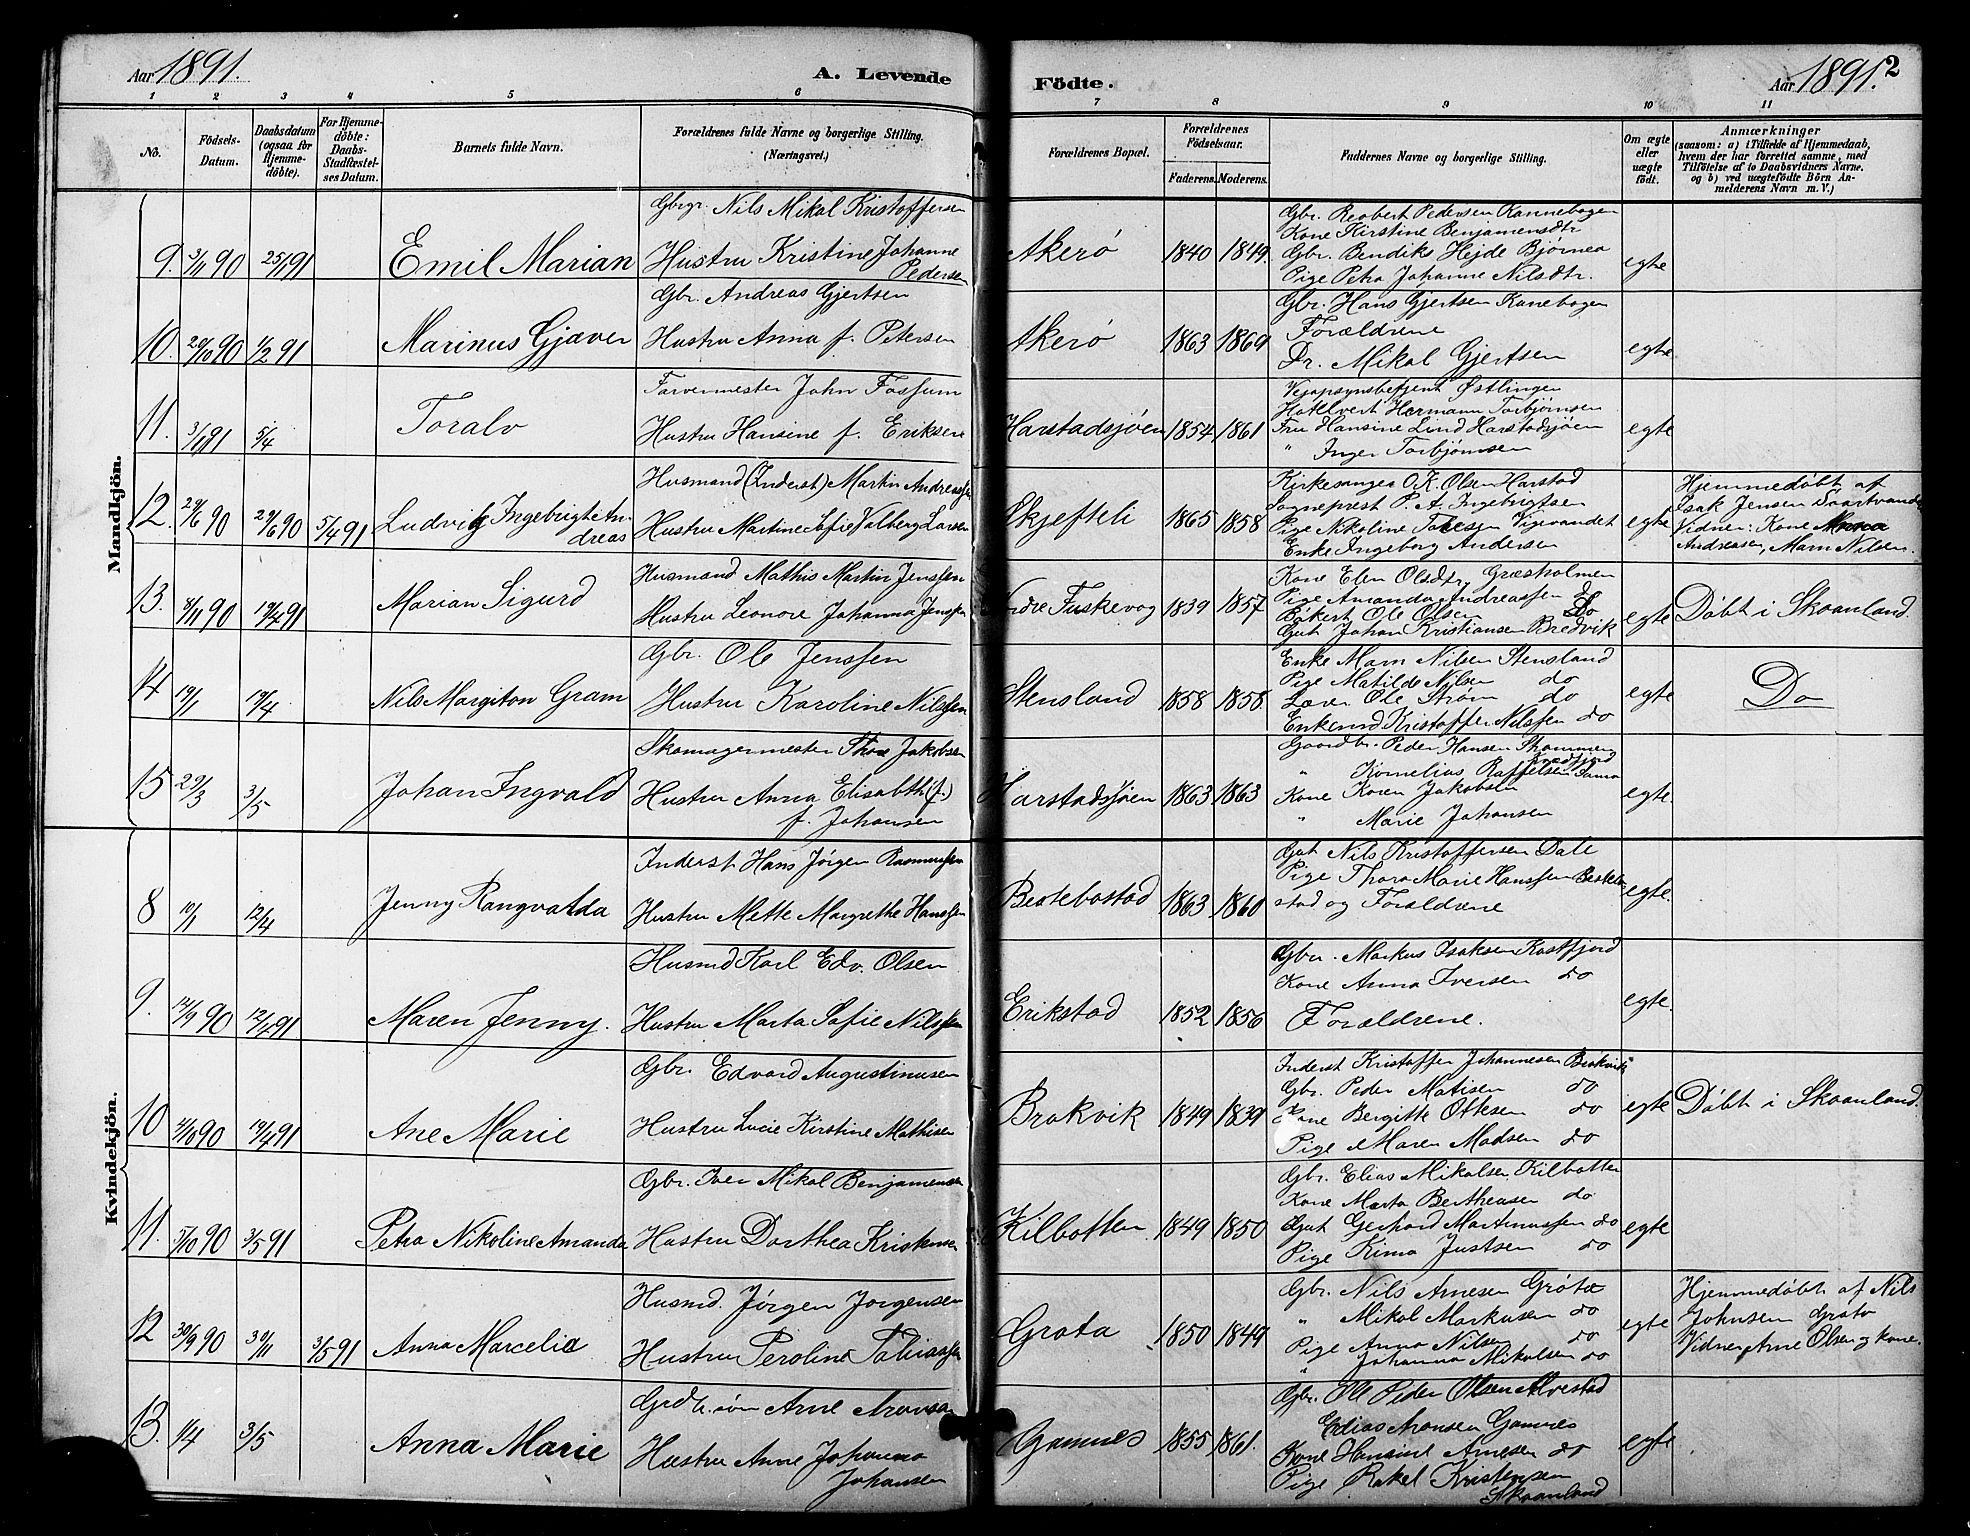 Aar 1891.
A. Levende
Födte.
Aar 1891. 2
1 2 3 4 5 6 7 8 9 10 11
No.
Födsels-Datum.
Daabsdatum (ogsaa for Hjemmedöbte).
For Hjemmedöbte: Daabs-Stadfæstelses Datum.
Barnets fulde Navn.
Forældrenes fulde Navne og borgerlige Stilling. (Næringsvei.)
Forældrenes Bopæl.
Forældrenes Födselsaar.
Faderens. Moderens.
Faddernes Navne og borgerlige Stilling.
Om ægte eller uægte födt.
Anmærkninger
(saasom: a) i Tilfælde af Hjemmedaab, hvem der har forrettet samme, med Tilföielse af to Daabsvidners Navne, og b) ved uægtefödte Börn Anmelderens Navn m. V.)
Mandkjön.
9. 3/11 90 25/1 91 Emil Marian
Gbrgr. Nils Mikal Kristoffersen
Hustru Kristine Johanne Pedersen
Akerø 1840 1849.
Gbr. Reobert Pedersen Kannebogen
Kone Kirstine Benjamensdtr
Gbr. Bendiks Hejde Bjørnea
Pige Petra Johanne Nilsdtr.
egte
10. 29/10 90 1/2 91 Marinus Gjæver
Gbr. Andreas Gjertsen
Hustru Anna f. Petersen
Akerø 1863 1869
Gbr. Hans Gjertsen Kanebogen
Forældrene
Dr. Mikal Gjertsen
egte
11. 3/1 91 5/4 Toralv
Farvermester John Fossum
Hustru Hansine f. Eriksen
Harstadsjøen 1854 1861
Vejopsynsbetjent Østlingen
Hotelvert Hermann Torbjørnsen
Fru Hansine Lind Harstadsjøen
" Inger Torbjørnsen
egte
12. 29/6 90 29/6 90 5/4 91 Ludvig Ingebrigt Andreas
Husmand (Inderst) Martin Andreassen
Hustru Martine Sofie Valberg Larsen
Skjefteli 1865 1858
Kirkesanger O. K. Olsen Harstad
Sogneprest P. A. Ingebrigtsen
Pige Nikoline Tollefsen Vigvandet
Enke Ingeborg Andersen
egte
Hjemmedøbt af
Isak Jensen Saartvandet
Vidner: Kone Anna
Andreasen, Marn Nilsen.
13. 8/11 90 19/4 91 Marian Sigurd
Husmand Mathis Martin Jenssen
Hustru Leonore Johanna Jenssen
Indre Fuskevog 1839 1857
Kone Elen Olsdtr. Græsholmen
Pige Amanda Andreassen do
Bøkert Ole Olsen Do
Gut Johan Kristiansen Bredvik
egte Døbt i Skaanland.
14 19/1 19/4 Nils Margiton Gram
Gbr. Ole Jenssen
Hustru Karoline Nilssen
Stensland 1858 1858.
Enke Marn Nilsen Stensland
Pige Matilde Nilsen do
Læer Ole Strøm do
Enkemd Kristoffer Nilssen do
egte Do
15 29/3 3/5 Johan Ingvald
Skomagermester Thore Jakobsen
Hustru Anna Elisabth (f.)
f. Johansen
Harstadsjøen 1863 1863
Gaardbr. Peder Hansen
" Kornelius Raffelsen
Kone Karen Jakobsen
" Marie Johansen
egte.
Kvindekjön.
8 10/1 12/4 Jenny Rangvalda
Inderst Hans Jørgen Rasmussen
Hustru Mette Margrethe Hanssen
Bestebostad 1863 1860
Gut Nils Kristoffersen Dale
Pige Thora Marie Hanssen Bestebo
stad og Forældrene
egte.
9. 14/9 90 12/4 91 Maren Jenny.
Husmd Karl Edv. Olsen
Hustru Marta Sofie Nilssen
Erikstad 1852 1856
Gbr. Markus Isaksen Kastfjord
Kone Anna Iversen do
Forældrene.
egte.
10 2/10 90 19/4 91 Ane Marie
Gbr. Edvard Augustinusen
Hustru Lucie Kirstine Mathisen
Brokvik 1849 1839
Inderst Kristoffer Johannesen
Gbr. Peder Matisen do
Kone Bergitte Ottesen do
Pige Maren Madsen do
egte Døbt i Skaanland.
11. 5/10 90 3/5 91 Petra Nikoline Amanda
Gbr. Iver Mikal Benjamensen
Hustru Dorthea Kristensen
Kilbotten 1849 1850
Gbr. Elias Mikalsen Kilbotten
Kone Marta Bertheusen do
Gut Gerhard Martinussen do
Pige Kima Justsen do
egte
12 30/9 90 30/11 3/5 91 Anna Marcelie
Husmd. Jørgen Jørgensen
Hustru Peroline Taliassen
Grøta 1850 1849
Gbr. Nils Arnesen Grøta
" Mikal Markusen do
Pige Anna Nilsen do
" Johanna Mikalsen do
egte
Hjemmedøbt af Nils
Johnsen Grøta
Vidner Arne Olsen og kone.
13. 1/4 3/5 Anna Marie
Grdbr. søn Arne Aronsen
Hustru Anne Johanna
Johansen
Gamnes 1855 1861.
Gbr. Ole Peder Olsen Alvestad
Edias Aronsen Gamnes
Kone Hansine Arnesen do
Pige Rakel Kristensen
Skaanland
egte.